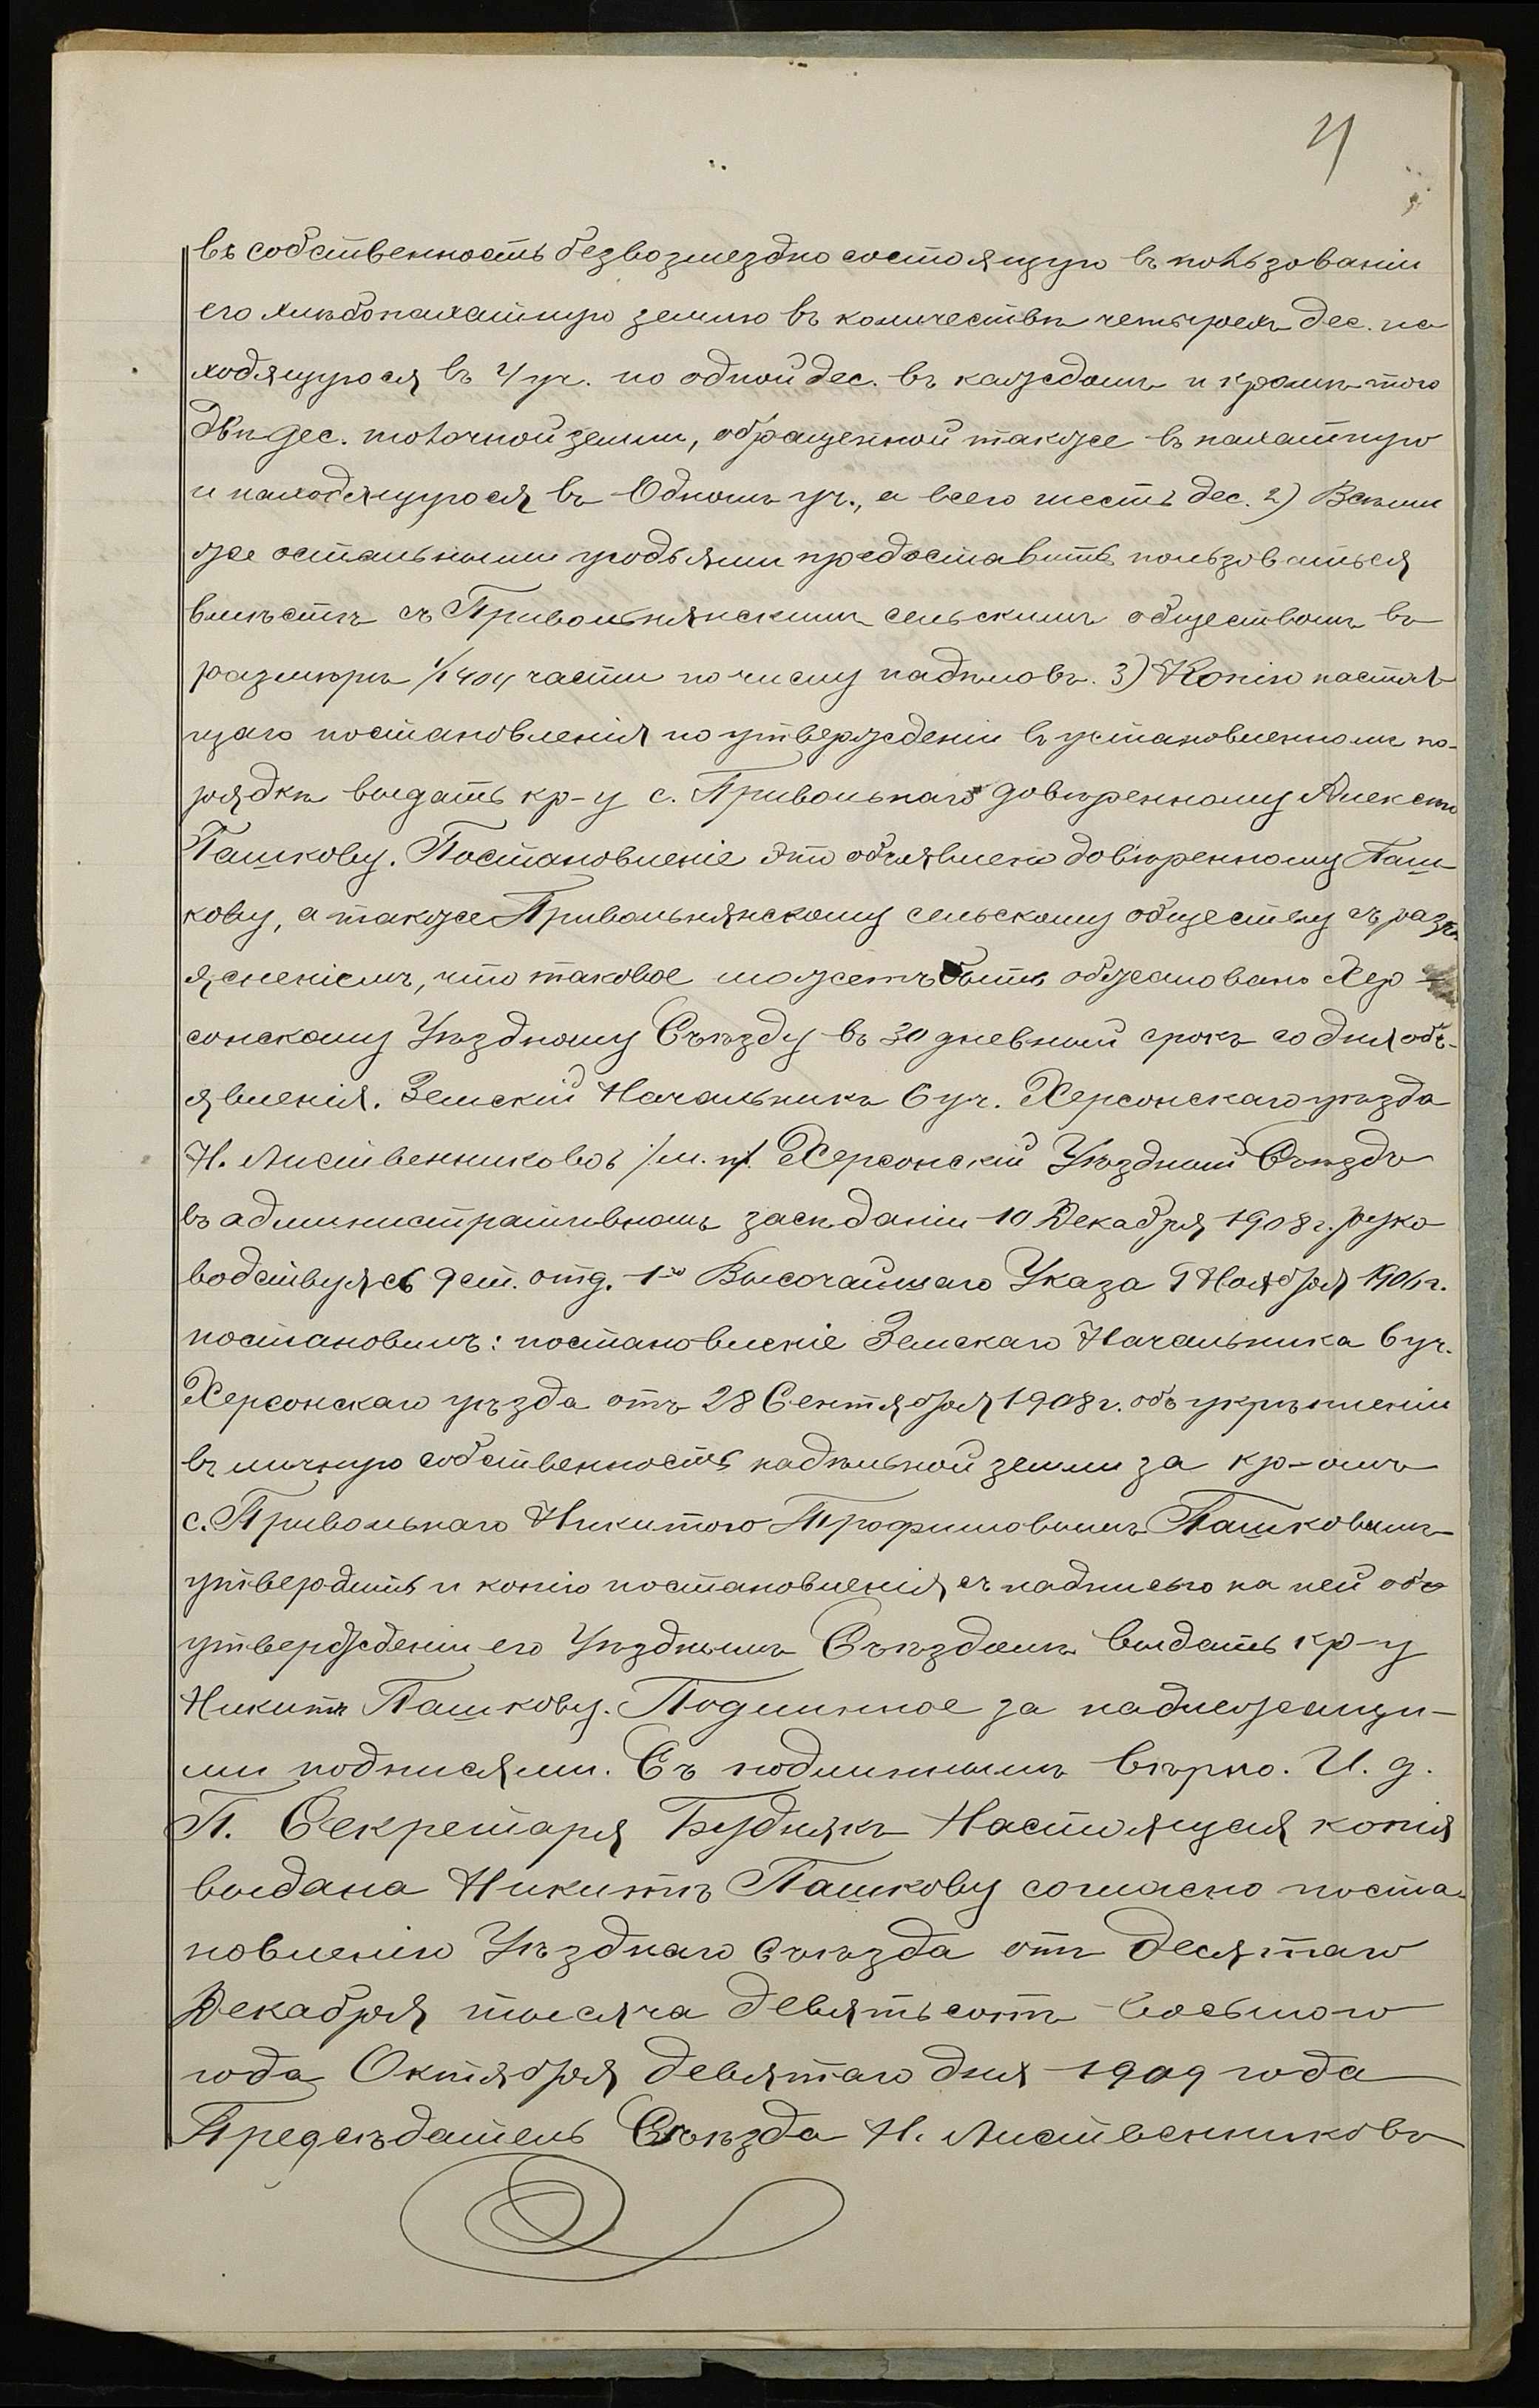 4
въ собственность безвозмездно состоящую въ пользованіи
его хлѣбопахатную землю въ количествѣ четырехъ дес. на
ходящуюся въ 4 уч. по одной дес. въ каждомъ и кромѣ того
двѣ дес. толочной земли, обращенной также въ пахатную
и находящуюся въ Одномъ уч., а всего шесть дес. 2) Всѣми
же остальными угодьями предоставить пользоваться
вмѣстѣ съ Привольнянскимъ сельскимъ обществомъ въ
размѣрѣ 1/1404 части по числу надѣловъ. 3) Копію настоя
щаго постановленія по утвержденіи въ установленномъ по-
рядкѣ выдать кр-у с. Привольнаго довѣренному Алексѣю
Пашкову. Постановленіе это объявлено довѣренному Паш
кову, а также Привольнянскому сельскому обществу съ разъ
ясненіемъ, что таковое можетъ быть обжаловано Хер-
сонскому Уѣздному Съѣзду въ 30 дневный срокъ со дня объ-
явленія. Земскій Начальникъ 6 уч. Херсонскаго уѣзда
Н. Лиственниковъ /м. п/. Херсонскій Уѣздный Съѣздъ
въ административномъ засѣданіи 10 Декабря 1908 г. руко
водствуясь 9 ст. отд. 1го Высочайшаго Указа 9 Ноября 1906 г.
постановилъ: постановленіе Земскаго Начальника 6 уч.
Херсонскаго уѣзда отъ 28 Сентября 1908 г. объ укрѣпленіи
въ личную собственность надѣльной земли за кр-омъ
с. Привольнаго Никитою Трофимовымъ Пашковымъ
утвердить и копію постановленія съ надписью на ней объ
утвержденіи его Уѣзднымъ Съѣздомъ выдать кр-у
Никитѣ Пашкову. Подлинное за надлежащи-
ми подписями. Съ подлиннымъ вѣрно. И. д.
П. Секретаря Будякъ Настоящая копія
выдана Никитѣ Пашкову согласно поста-
новленію Уѣзднаго Съѣзда отъ десятаго
Декабря тысяча девятьсотъ восьмого
года Октября девятаго дня 1909 года
Предсѣдатель Съѣзда Н. Лиственниковъ